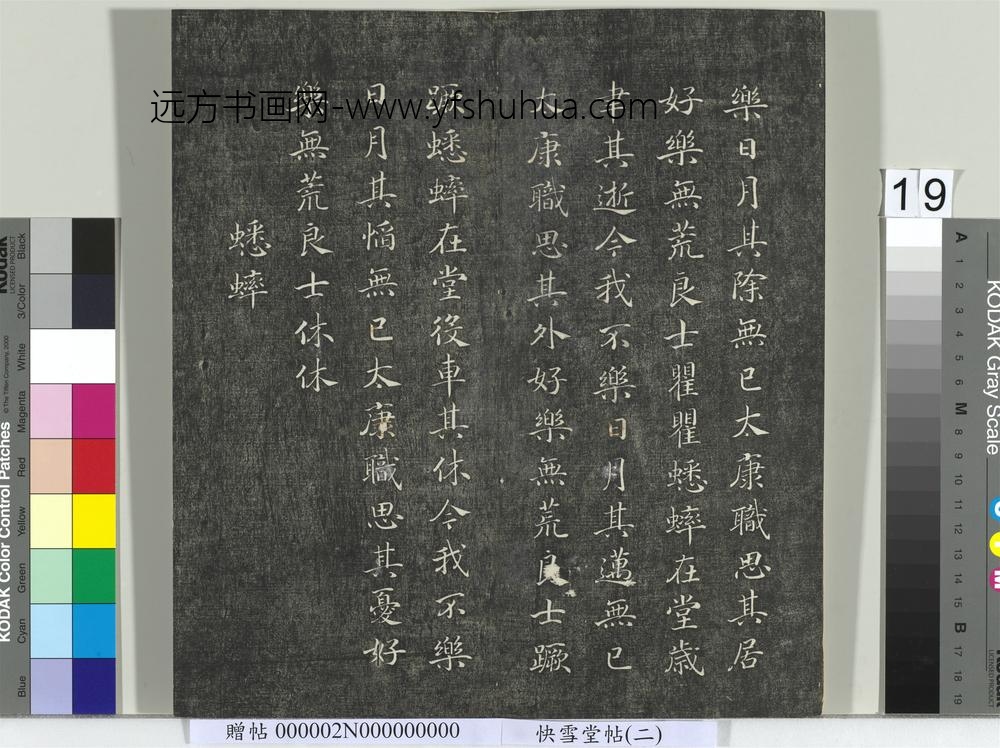 樂日月其除無已太康職思其居
好樂無荒良士瞿瞿蟋蟀在堂歲
聿其逝今我不樂日月其邁無已
太康職思其外好樂無荒良士蹶
蹶蟋蟀在堂役車其休今我不樂
日月其慆無已太康職思其憂好
樂無荒良士休休
蟋蟀
远方书画网-www.yfshuhua.com
19
贈帖 000002N000000000
快雪堂帖(二)
KODAK Color Control Patches
© The Tiffen Company, 2000
Kodak
LICENSED PRODUCT
Blue
Cyan
Green
Yellow
Red
Magenta
White
3/Color
Black
KODAK Gray Scale
A 1 2 3 4 5 6 M 8 9 10 11 12 13 14 15 B 17 18 19